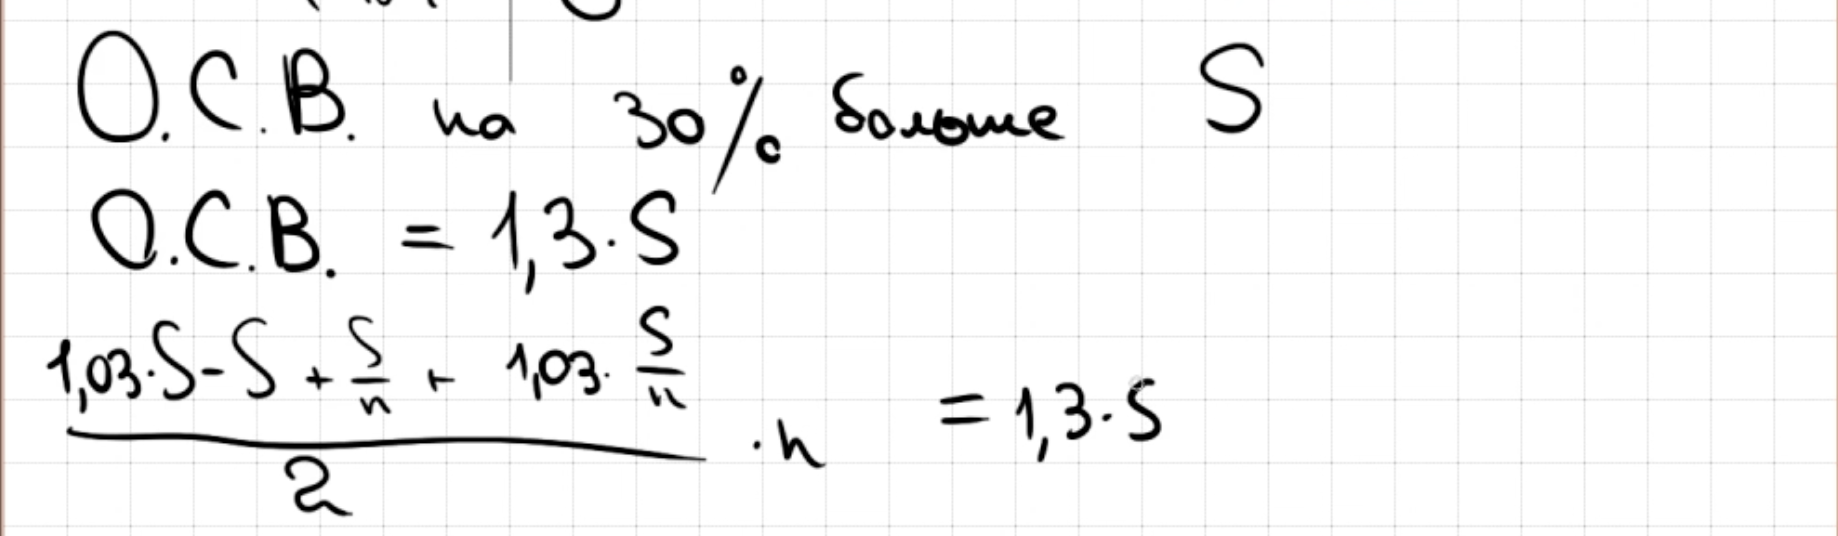 О.С.В. на 30% больше S
О.С.В. = 1,3·S
(1,03·S - S + S/n + 1,03·S/n)/2 · n = 1,3·S